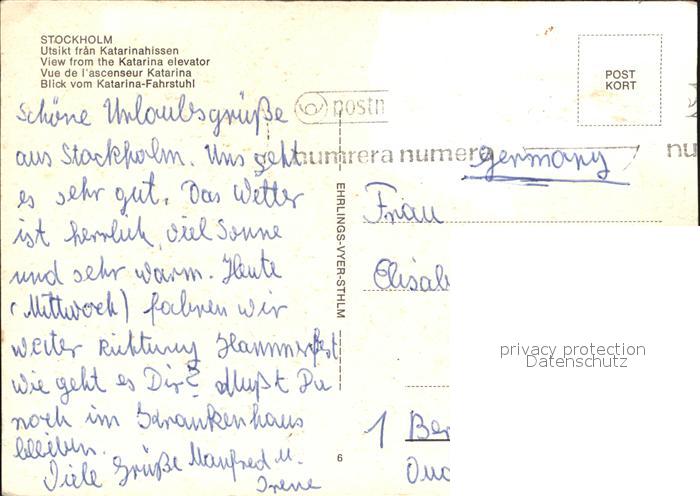 STOCKHOLM
Utsikt från Katarinahissen
View from the Katarina elevator
Vue de l'ascenseur Katarina
Blick vom Katarina-Fahrstuhl
POST
KORT
postn
numrera numrera
nu
Germany
Schöne Urlaubsgrüße
aus Stockholm. Uns geht
es sehr gut. Das Wetter
ist herrlich, viel Sonne
und sehr warm. Heute
(Mittwoch) fahren wir
weiter Richtung Hammerfest
wie geht es Dir? Mußt Du
noch im Krankenhaus
bleiben.
Viele Grüße Manfred u.
Irene
EHRLINGS-VYER-STHLM
6
Frau
Elisab
privacy protection
Datenschutz
1 Ber